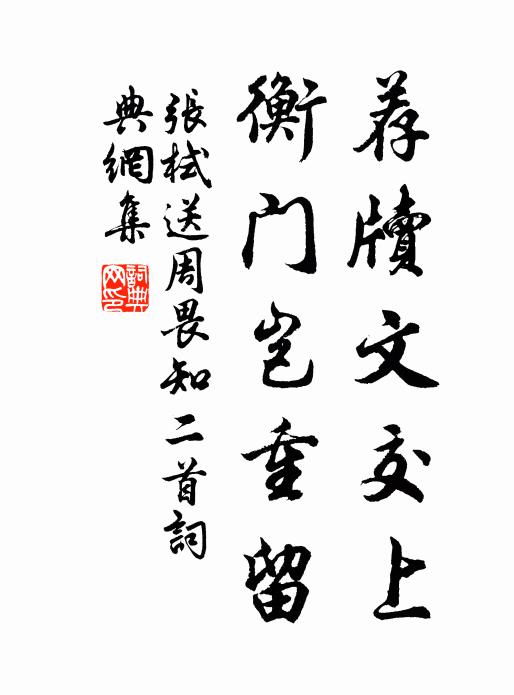 荐牍文交上
衡门岂重留
張栻送周畏知二首詞
典網集
詞典网印